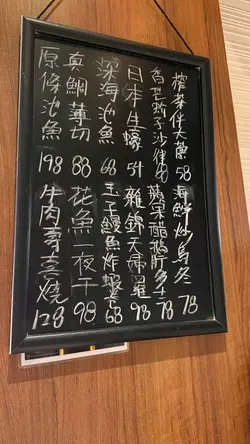 榨菜伴大 58 海鮮炒烏冬 78
香芒 子沙律 蘋果醋鵝肝多士 78
日本生蠔 54 雜錦天婦羅 98
深海池魚 68 玉子鰻魚炸蝦 68
真鯛薄切 88 花魚一夜干 98
原條池魚 198 牛肉壽喜燒 128